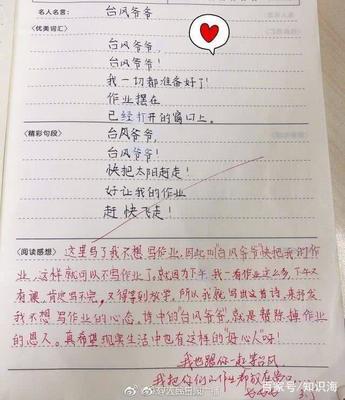 名人名言: 台风爷爷
〈优美词汇〉
台风爷爷,
台风爷爷!
我一切都准备好了!
作业摆在
已经打开的窗口上。
〈精彩句段〉
台风爷爷,
台风爷爷!
快把太阳赶走!
好让我的作业
赶快飞走!
〈阅读感想〉 这里写了我不想写作业,因此叫"台风爷爷"快把我的作
业,这样就可以不写作业了,就因为下午我一看作业这么多,下午又
有课,肯定写不完,又得等到放学,所以我就写出这首诗,来抒发
我不想写作业的心态,诗中的台风爷爷,就是帮除掉作业
的恩人。真希望现实生活中也有这样的"好心人"呀!
我也跟你一起等台风
我把你们的作业都放在窗口
@人民日报
百家号/知识海